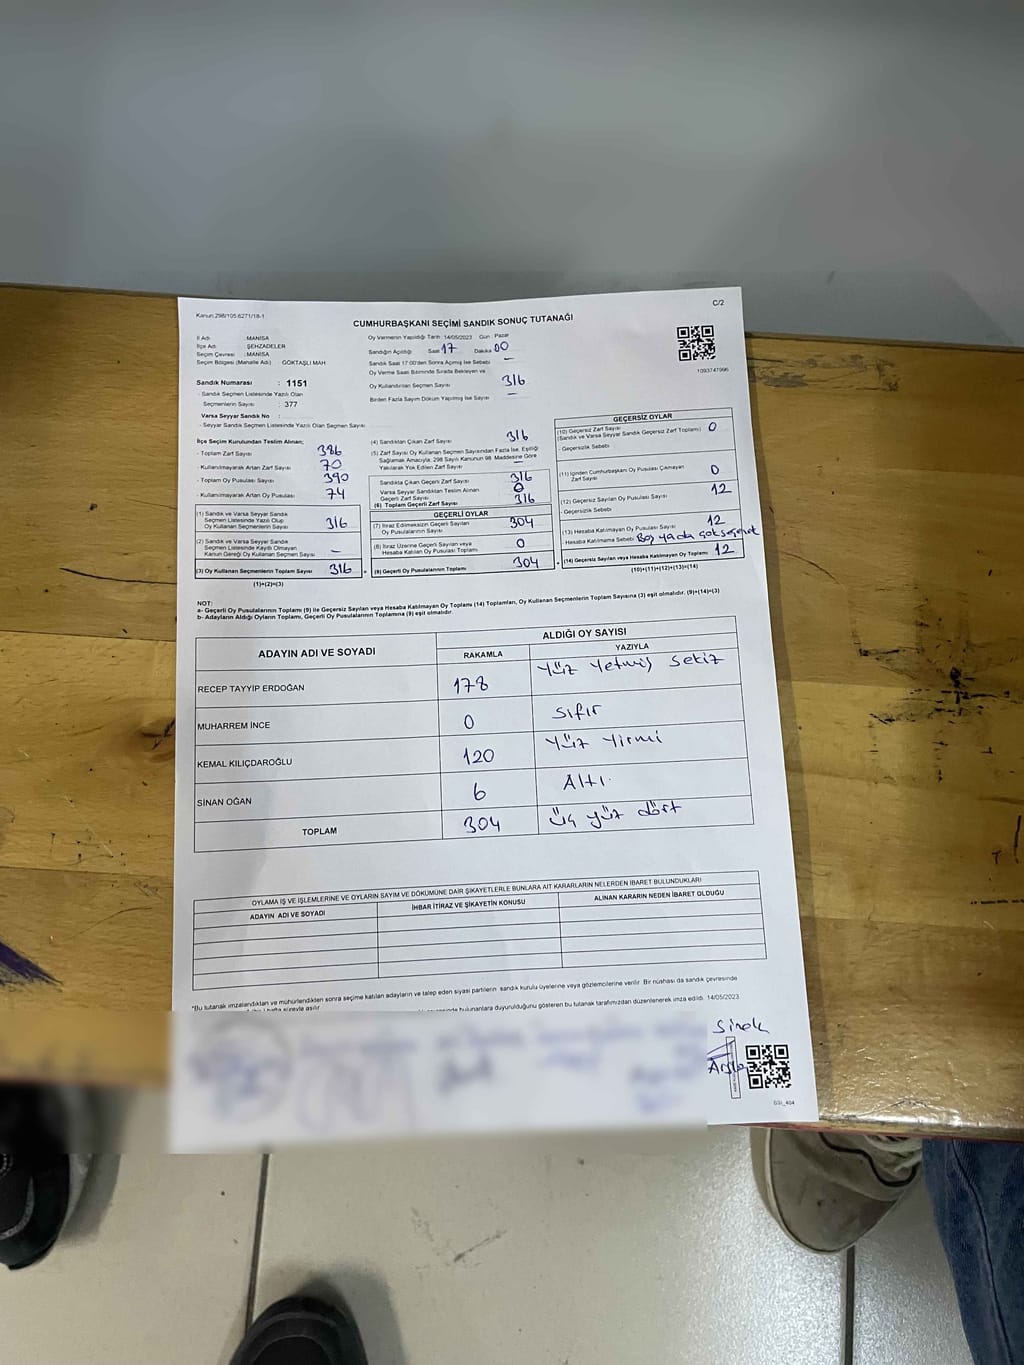 C/2
Kanun:298/105:6271/18-1
CUMHURBAŞKANI SEÇİMİ SANDIK SONUÇ TUTANAĞI
İl Adı : MANİSA
İlçe Adı : ŞEHZADELER
Seçim Çevresi : MANİSA
Seçim Bölgesi (Mahalle Adı) GÖKTAŞLI MAH
Sandık Numarası : 1151
- Sandık Seçmen Listesinde Yazılı Olan
Seçmenlerin Sayısı : 377
Varsa Seyyar Sandık No :
- Seyyar Sandık Seçmen Listesinde Yazılı Olan Seçmen Sayısı
Oy Vermenin Yapıldığı Tarih :14/05/2023 Gün : Pazar
Sandığın Açıldığı Saat 17 Dakika 00
Sandık Saat 17:00'den Sonra Açılmış İse Sebebi —
Oy Verme Saati Bitiminde Sırada Bekleyen ve
Oy Kullandırılan Seçmen Sayısı 316
Birden Fazla Sayım Döküm Yapılmış İse Sayısı —
1093747996
İlçe Seçim Kurulundan Teslim Alınan;
- Toplam Zarf Sayısı 386
- Kullanılmayarak Artan Zarf Sayısı 70
- Toplam Oy Pusulası Sayısı 390
- Kullanılmayarak Artan Oy Pusulası 74
(1) Sandık ve Varsa Seyyar Sandık
Seçmen Listesinde Yazılı Olup
Oy Kullanan Seçmenlerin Sayısı 316
(2) Sandık ve Varsa Seyyar Sandık
Seçmen Listesinde Kayıtlı Olmayan
Kanun Gereği Oy Kullanan Seçmen Sayısı —
(3) Oy Kullanan Seçmenlerin Toplam Sayısı 316
(1)+(2)=(3)
(4) Sandıktan Çıkan Zarf Sayısı 316
(5) Zarf Sayısı Oy Kullanan Seçmen Sayısından Fazla İse, Eşitliği
Sağlamak Amacıyla; 298 Sayılı Kanunun 98. Maddesine Göre
Yakılarak Yok Edilen Zarf Sayısı —
Sandıkta Çıkan Geçerli Zarf Sayısı 316
Varsa Seyyar Sandıktan Teslim Alınan
Geçerli Zarf Sayısı 0
(6) Toplam Geçerli Zarf Sayısı 316
GEÇERLİ OYLAR
(7) İtiraz Edilmeksizin Geçerli Sayılan
Oy Pusulalarının Sayısı 304
(8) İtiraz Üzerine Geçerli Sayılan veya
Hesaba Katılan Oy Pusulası Toplamı 0
(9) Geçerli Oy Pusulalarının Toplamı 304
GEÇERSİZ OYLAR
(10) Geçersiz Zarf Sayısı
(Sandık ve Varsa Seyyar Sandık Geçersiz Zarf Toplamı) 0
- Geçersizlik Sebebi
(11) İçinden Cumhurbaşkanı Oy Pusulası Çıkmayan
Zarf Sayısı 0
(12) Geçersiz Sayılan Oy Pusulası Sayısı 12
- Geçersizlik Sebebi
(13) Hesaba Katılmayan Oy Pusulası Sayısı 12
Hesaba Katılmama Sebebi Boş ya da çok seçenek
(14) Geçersiz Sayılan veya Hesaba Katılmayan Oy Toplamı 12
(10)+(11)+(12)+(13)=(14)
NOT:
a- Geçerli Oy Pusulalarının Toplamı (9) ile Geçersiz Sayılan veya Hesaba Katılmayan Oy Toplamı (14) Toplamları, Oy Kullanan Seçmenlerin Toplam Sayısına (3) eşit olmalıdır. (9)+(14)=(3)
b- Adayların Aldığı Oyların Toplamı, Geçerli Oy Pusulalarının Toplamına (9) eşit olmalıdır.
ADAYIN ADI VE SOYADI
ALDIĞI OY SAYISI
RAKAMLA YAZIYLA
RECEP TAYYİP ERDOĞAN 178 Yüz Yetmiş Sekiz
MUHARREM İNCE 0 Sıfır
KEMAL KILIÇDAROĞLU 120 Yüz Yirmi
SİNAN OĞAN 6 Altı
TOPLAM 304 Üç yüz dört
OYLAMA İŞ VE İŞLEMLERİNE VE OYLARIN SAYIM VE DÖKÜMÜNE DAİR ŞİKAYETLERLE BUNLARA AİT KARARLARIN NELERDEN İBARET BULUNDUKLARI
ADAYIN ADI VE SOYADI İHBAR İTİRAZ VE ŞİKAYETİN KONUSU ALINAN KARARIN NEDEN İBARET OLDUĞU
*Bu tutanak imzalandıktan ve mühürlendikten sonra seçime katılan adayların ve talep eden siyasi partilerin sandık kurulu üyelerine veya gözlemcilerine verilir. Bir nüshası da sandık çevresinde
hafta süreyle asılır.
bulunanlara duyurulduğunu gösteren bu tutanak tarafımızdan düzenlenerek imza edildi. 14/05/2023